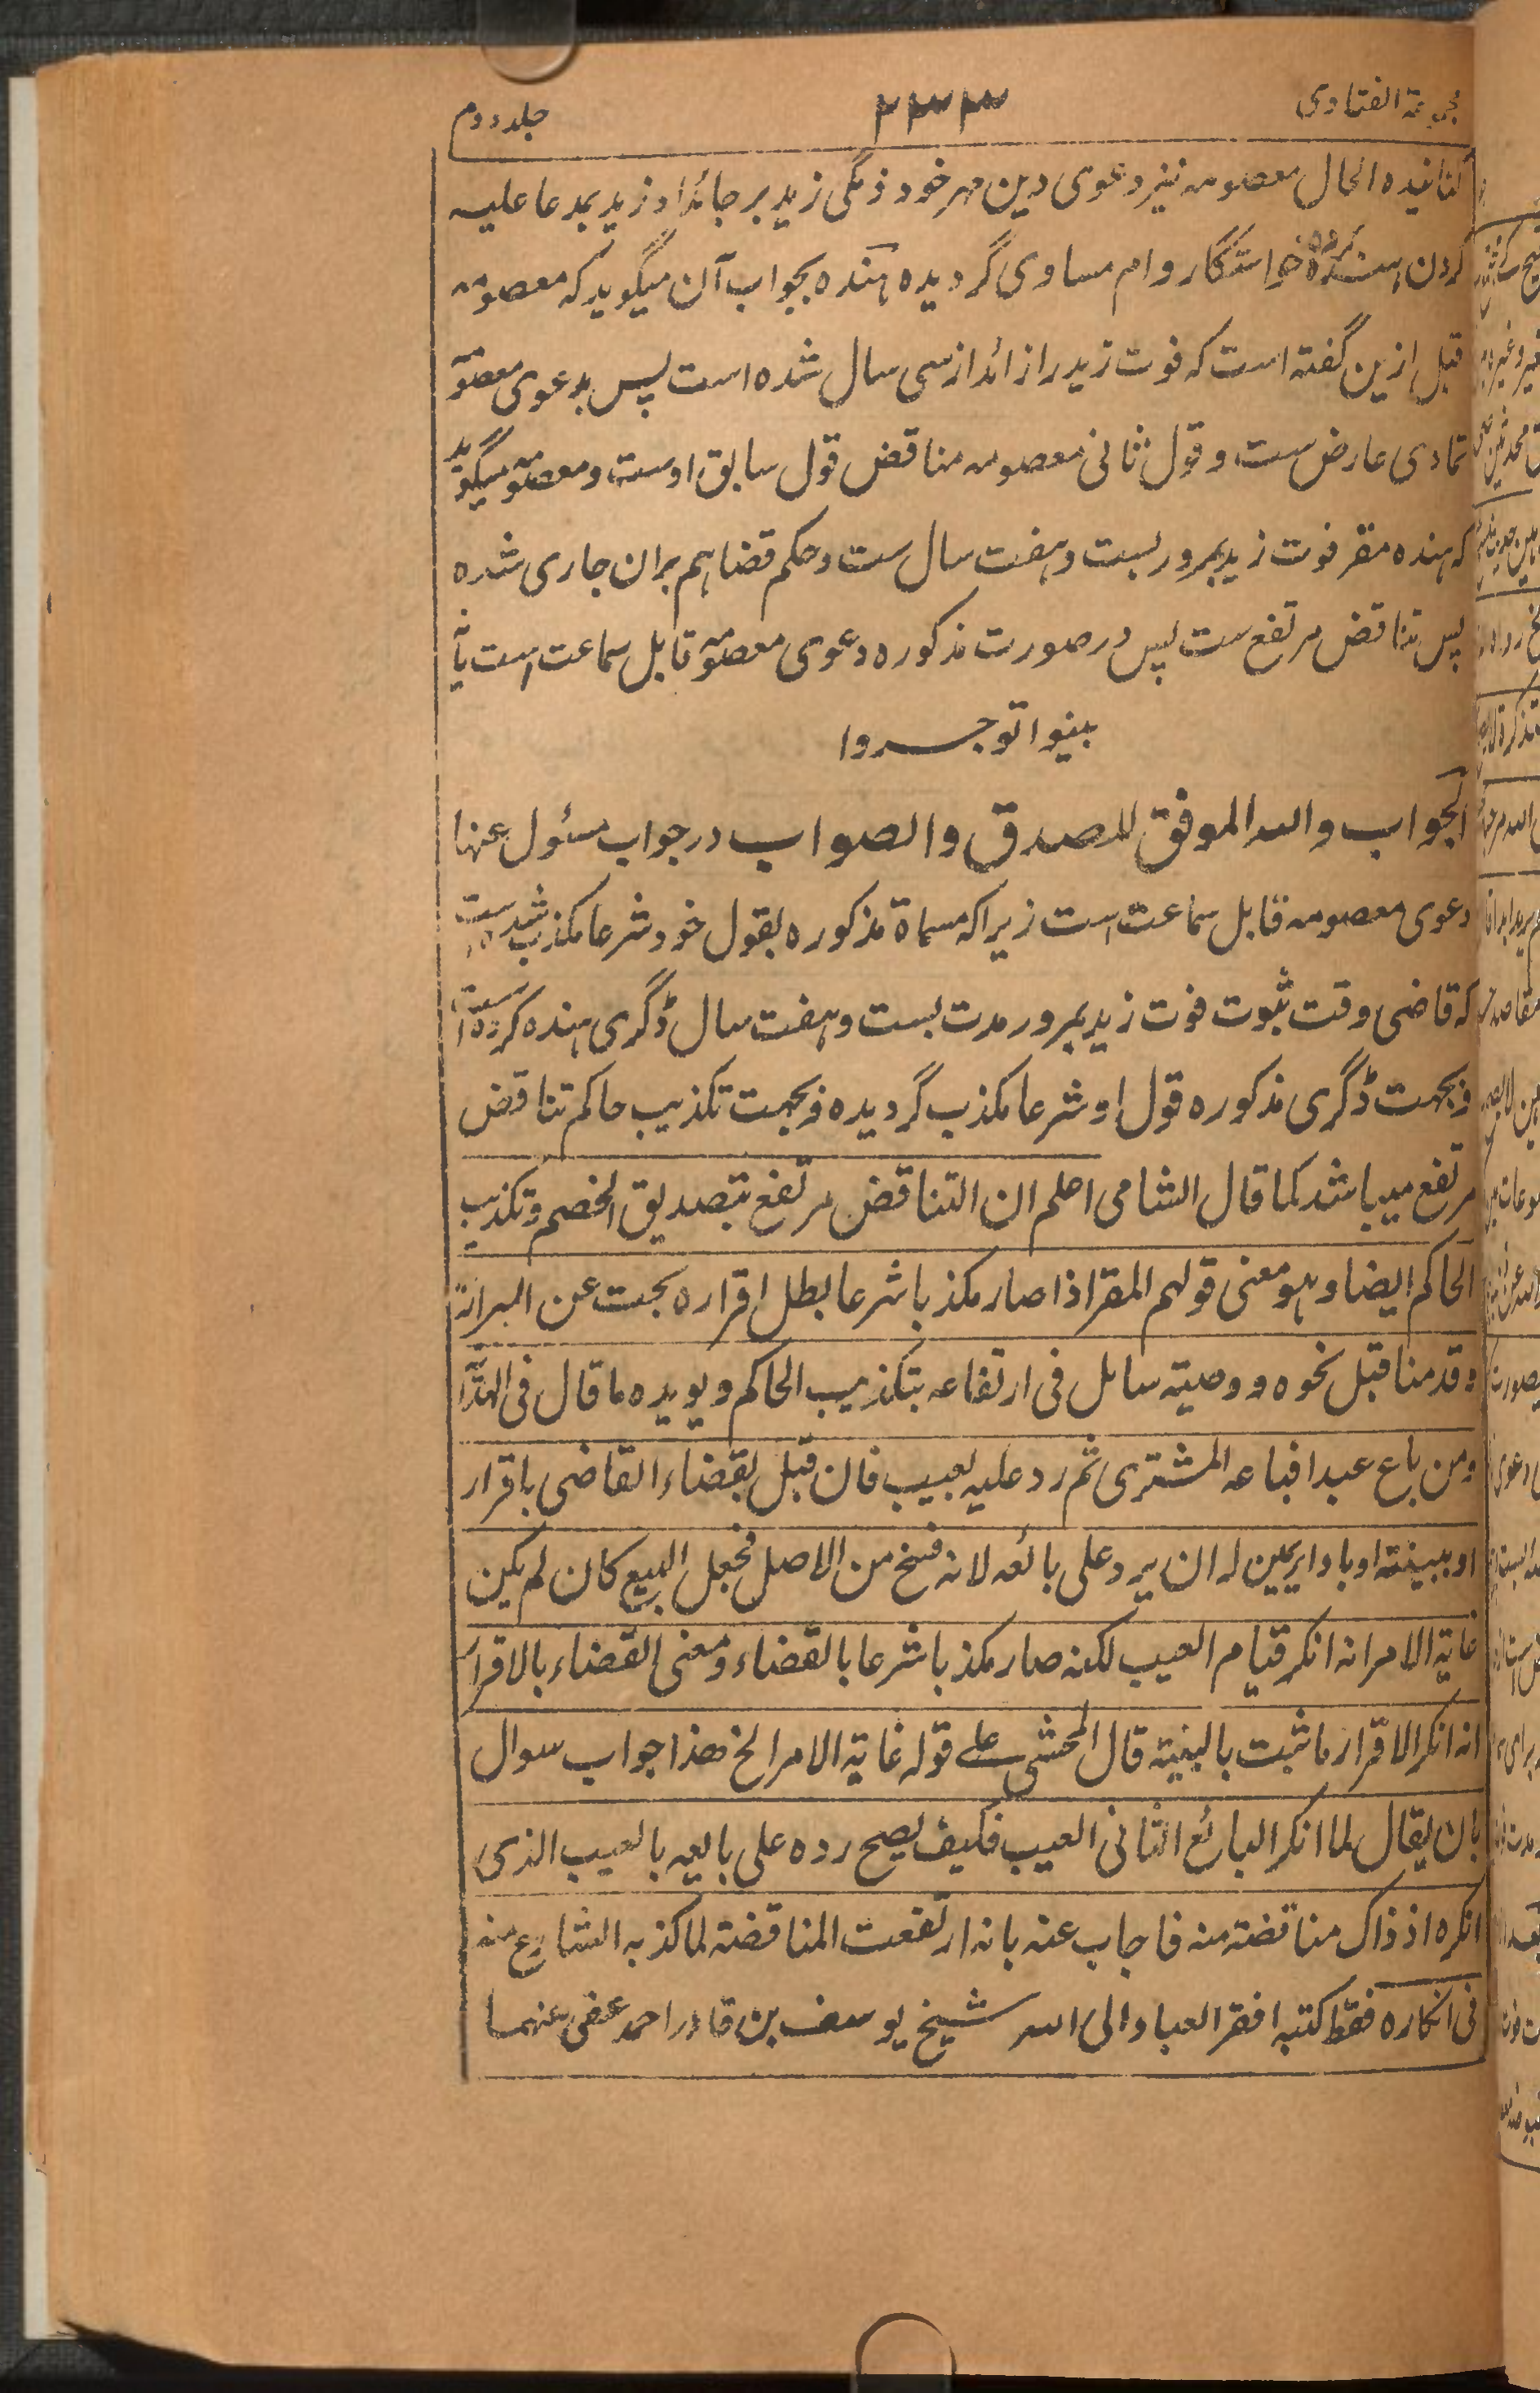 مجموعۃ الفتاوی ۲۳۳ جلد دوم
کنانیده الحال معصومہ نیز دعوی دین مہر خود ذمگی زید بر جائداد زید بمدعا علیہ
کردن ہندہ خواستگار وام مساوی گردیدہ ہندہ بجواب آن میگوید کہ معصومہ
قبل ازین گفتہ است کہ فوت زید را زائد از سی سال شدہ است پس بدعوی معصومہ
تمادی عارض ست و قول ثانی معصومہ مناقض قول سابق اوست و معصومہ میگوید
کہ ہندہ مقر فوت زید بمرور بست و ہفت سال ست و حکم قضا ہم بران جاری شدہ
پس تناقض مرتفع ست پس در صورت مذکورہ دعوی معصومہ قابل سماعت است یا نہ
بینوا توجروا
الجواب واللہ الموفق للصدق والصواب در جواب مسئول عنہا
دعوی معصومہ قابل سماعت است زیرا کہ مسماۃ مذکورہ بقول خود شرعا مکذب شدہ است
کہ قاضی وقت ثبوت فوت زید بمرور مدت بست و ہفت سال ڈگری ہندہ کردہ است
و بجہت ڈگری مذکورہ قول او شرعا مکذب گردیدہ و بجہت تکذیب حاکم تناقض
مرتفع میباشد کما قال الشامی اعلم ان التناقض مرتفع بتصدیق الخصم و تکذیب
الحاکم ایضا و ہو معنی قولہم المقر اذا صار مکذبا شرعا بطل اقرارہ بحث عن البراءۃ
و قدمنا قبل نحوہ و وصیتہ سائل فی ارتفاعہ بتکذیب الحاکم و یویدہ ما قال فی الہدایۃ
ومن باع عبدا فباعہ المشتری ثم رد علیہ بعیب فان قبل بقضاء القاضی باقرار
او ببینتہ او باو ایریمین لہ ان یرد علی بائعہ لانہ فسخ من الاصل فجعل البیع کان لم یکن
غایۃ الامر انہ انکر قیام العیب لکنہ صار مکذبا شرعا بالقضاء و معنی القضاء بالاقرار
انہ انکر الاقرار ما ثبت بالبینۃ قال المحشی علے قولہ غایۃ الامر الخ ھذا جواب سوال
بان یقال لما انکر البائع الثانی العیب فکیف یصح ردہ علی بایعہ بالعیب الذی
انکرہ اذ ذاک مناقضتہ منہ فاجاب عنہ بانہ ارتفعت المناقضتہ لما کذبہ الشارع منہ
فی انکارہ فقط کتبہ افقر العباد الی اللہ شیخ یوسف بن قادر احمد عفی عنہما